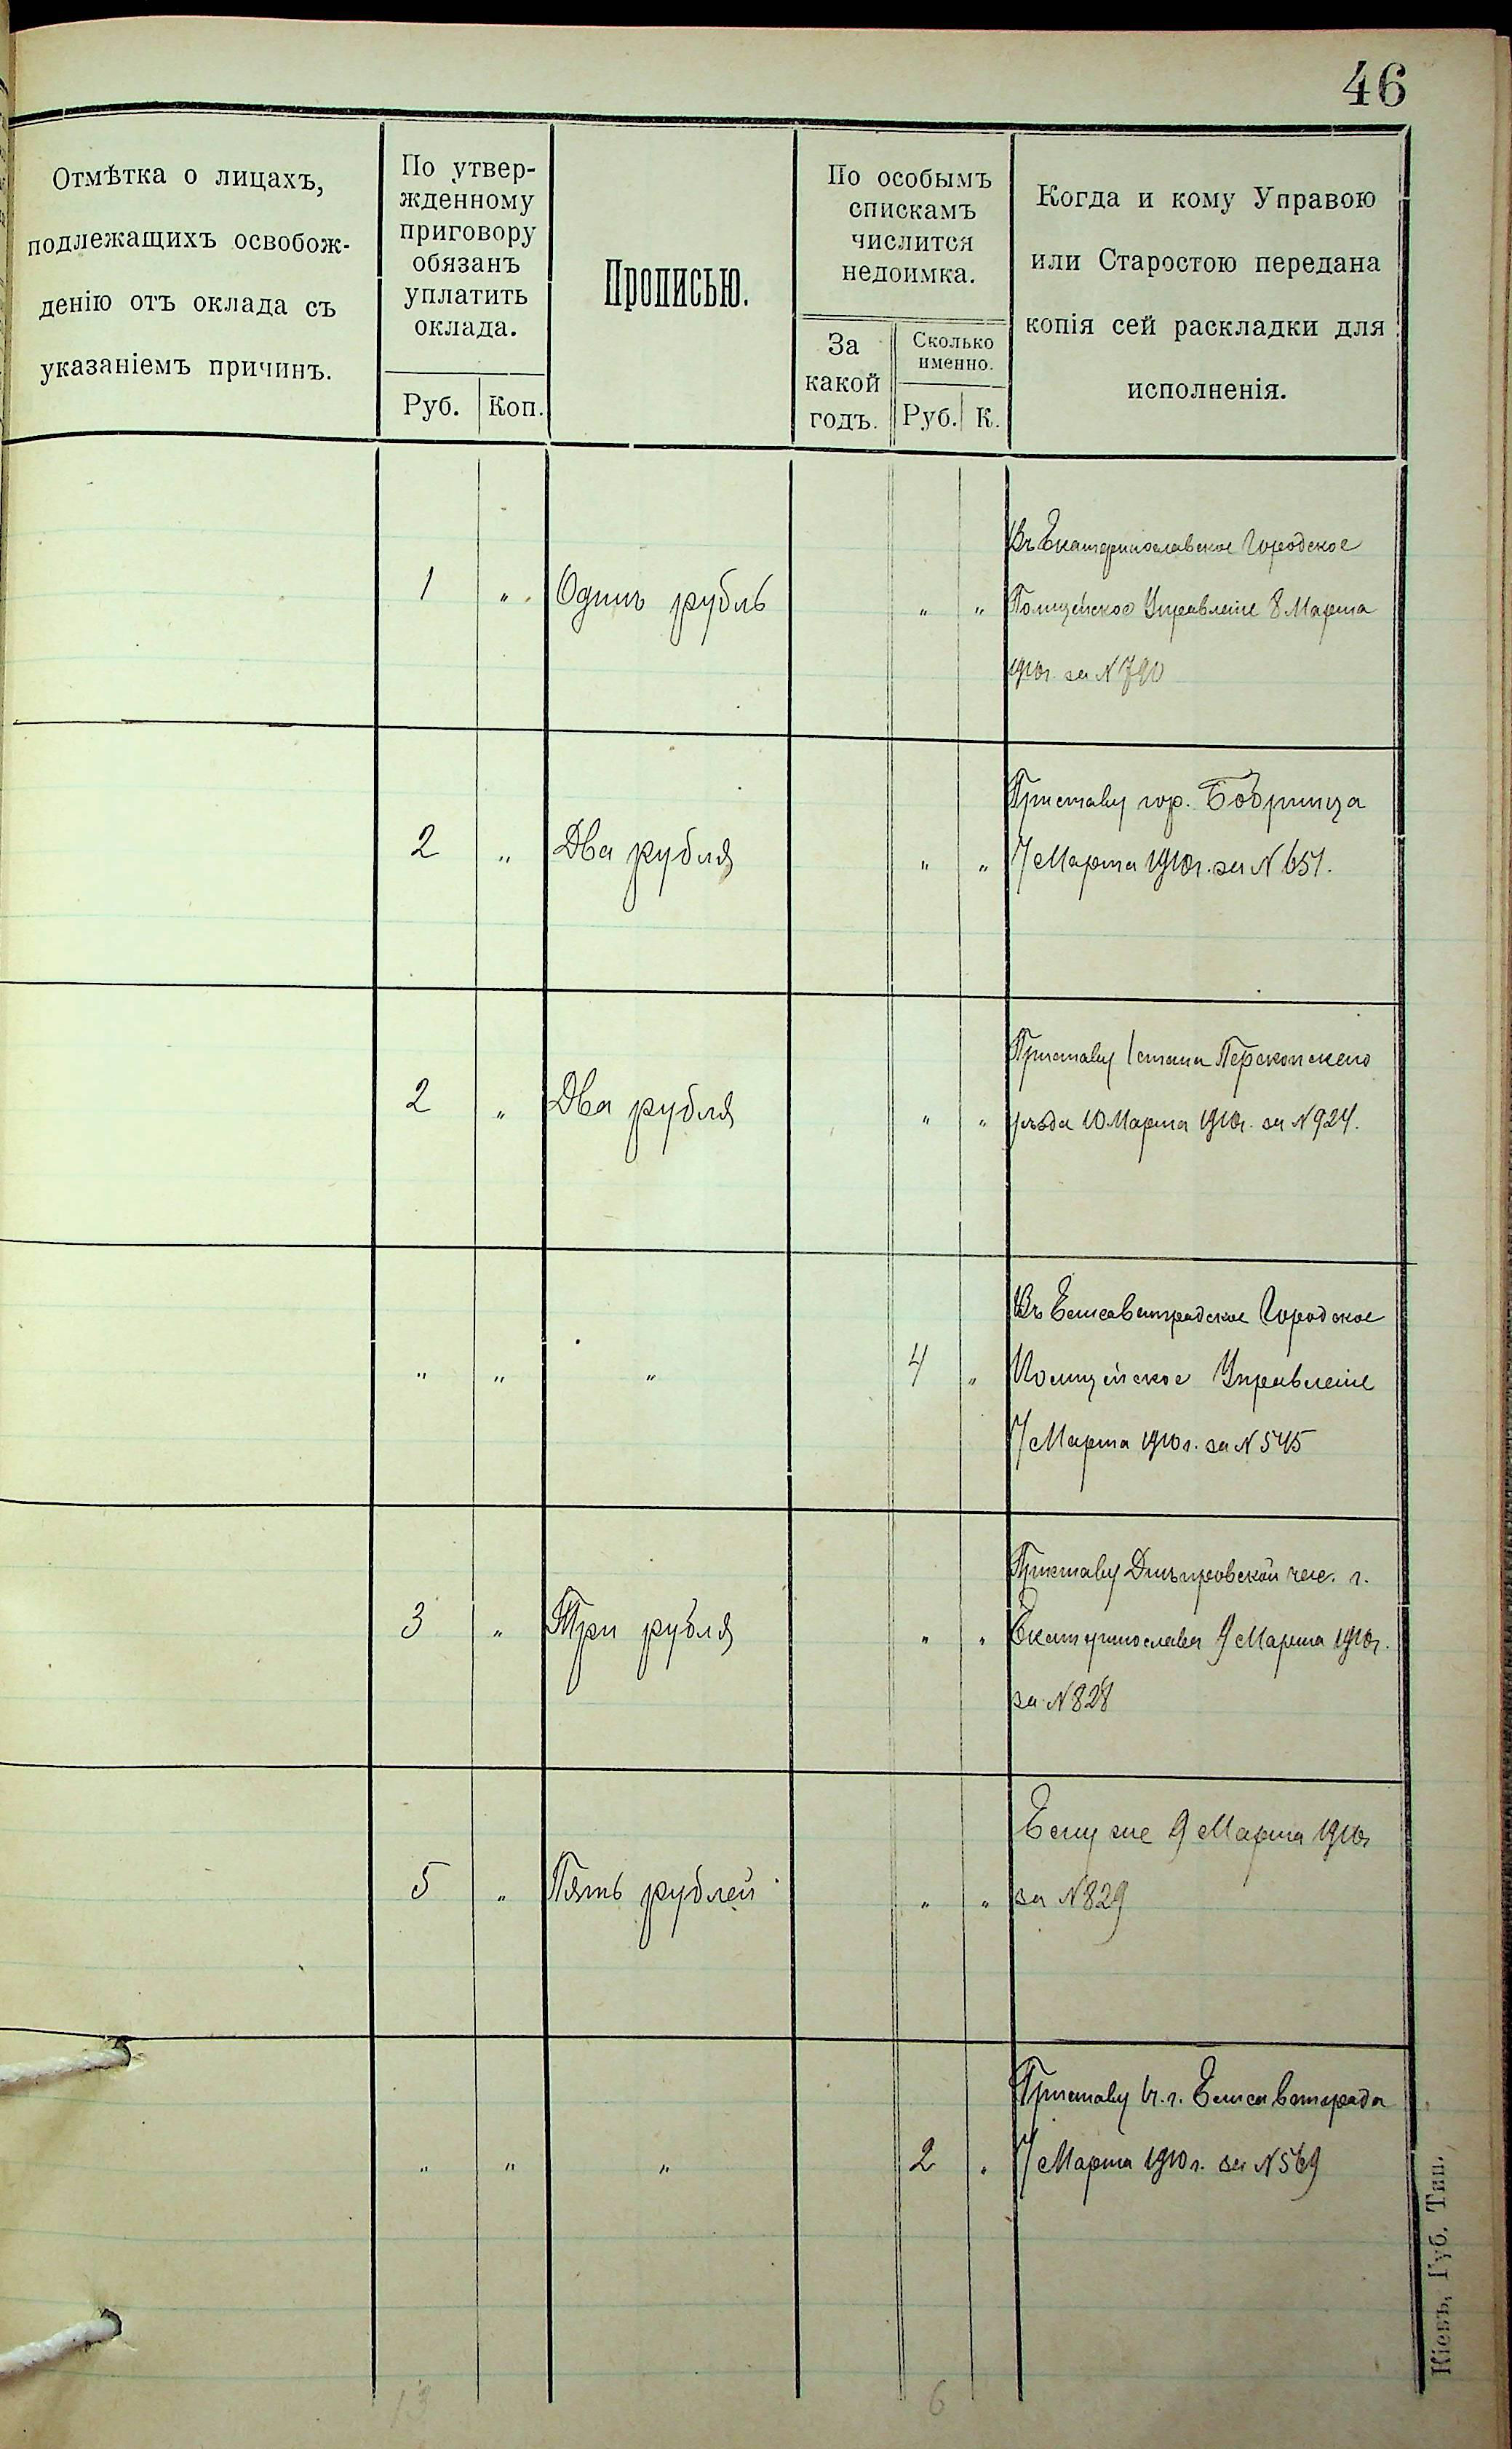 46
Отмѣтка о лицахъ,
подлежащихъ освобож-
денію отъ оклада съ
указаніемъ причинъ.
По утвер-
жденному
приговору
обязанъ
уплатить
оклада.
Руб. Коп.
Прописью.
По особымъ
спискамъ
числится
недоимка.
За
какой
годъ.
Сколько
именно.
Руб. К.
Когда и кому Управою
или Старостою передана
копія сей раскладки для
исполненія.
Въ Екатеринославское Городское
1 " Одинъ рубль " " Полицейское Управленіе 8 Марта
1910г. за N 790
Приставу гор. Бобринца
2 " Два рубля " " 7 Марта 1910г. за N 651.
Приставу 1 стана Перекопскаго
2 " Два рубля " " уѣзда 10 Марта 1910г. за N 924.
Въ Елисаветградское Городское
" " " 4 " Полицейское Управленіе
7 Марта 1910г. за N 545
Приставу Днѣпровской час. г.
3 " Три рубля " " Екатеринослава 9 Марта 1910г.
за N 828
Ему же 9 Марта 1910г
5 " Пять рублей " " за N 829
Приставу ч. г. Елисаветграда
" " " 2 " 7 Марта 1910г. за N 569
13 6
Кіевъ, Губ. Тип.